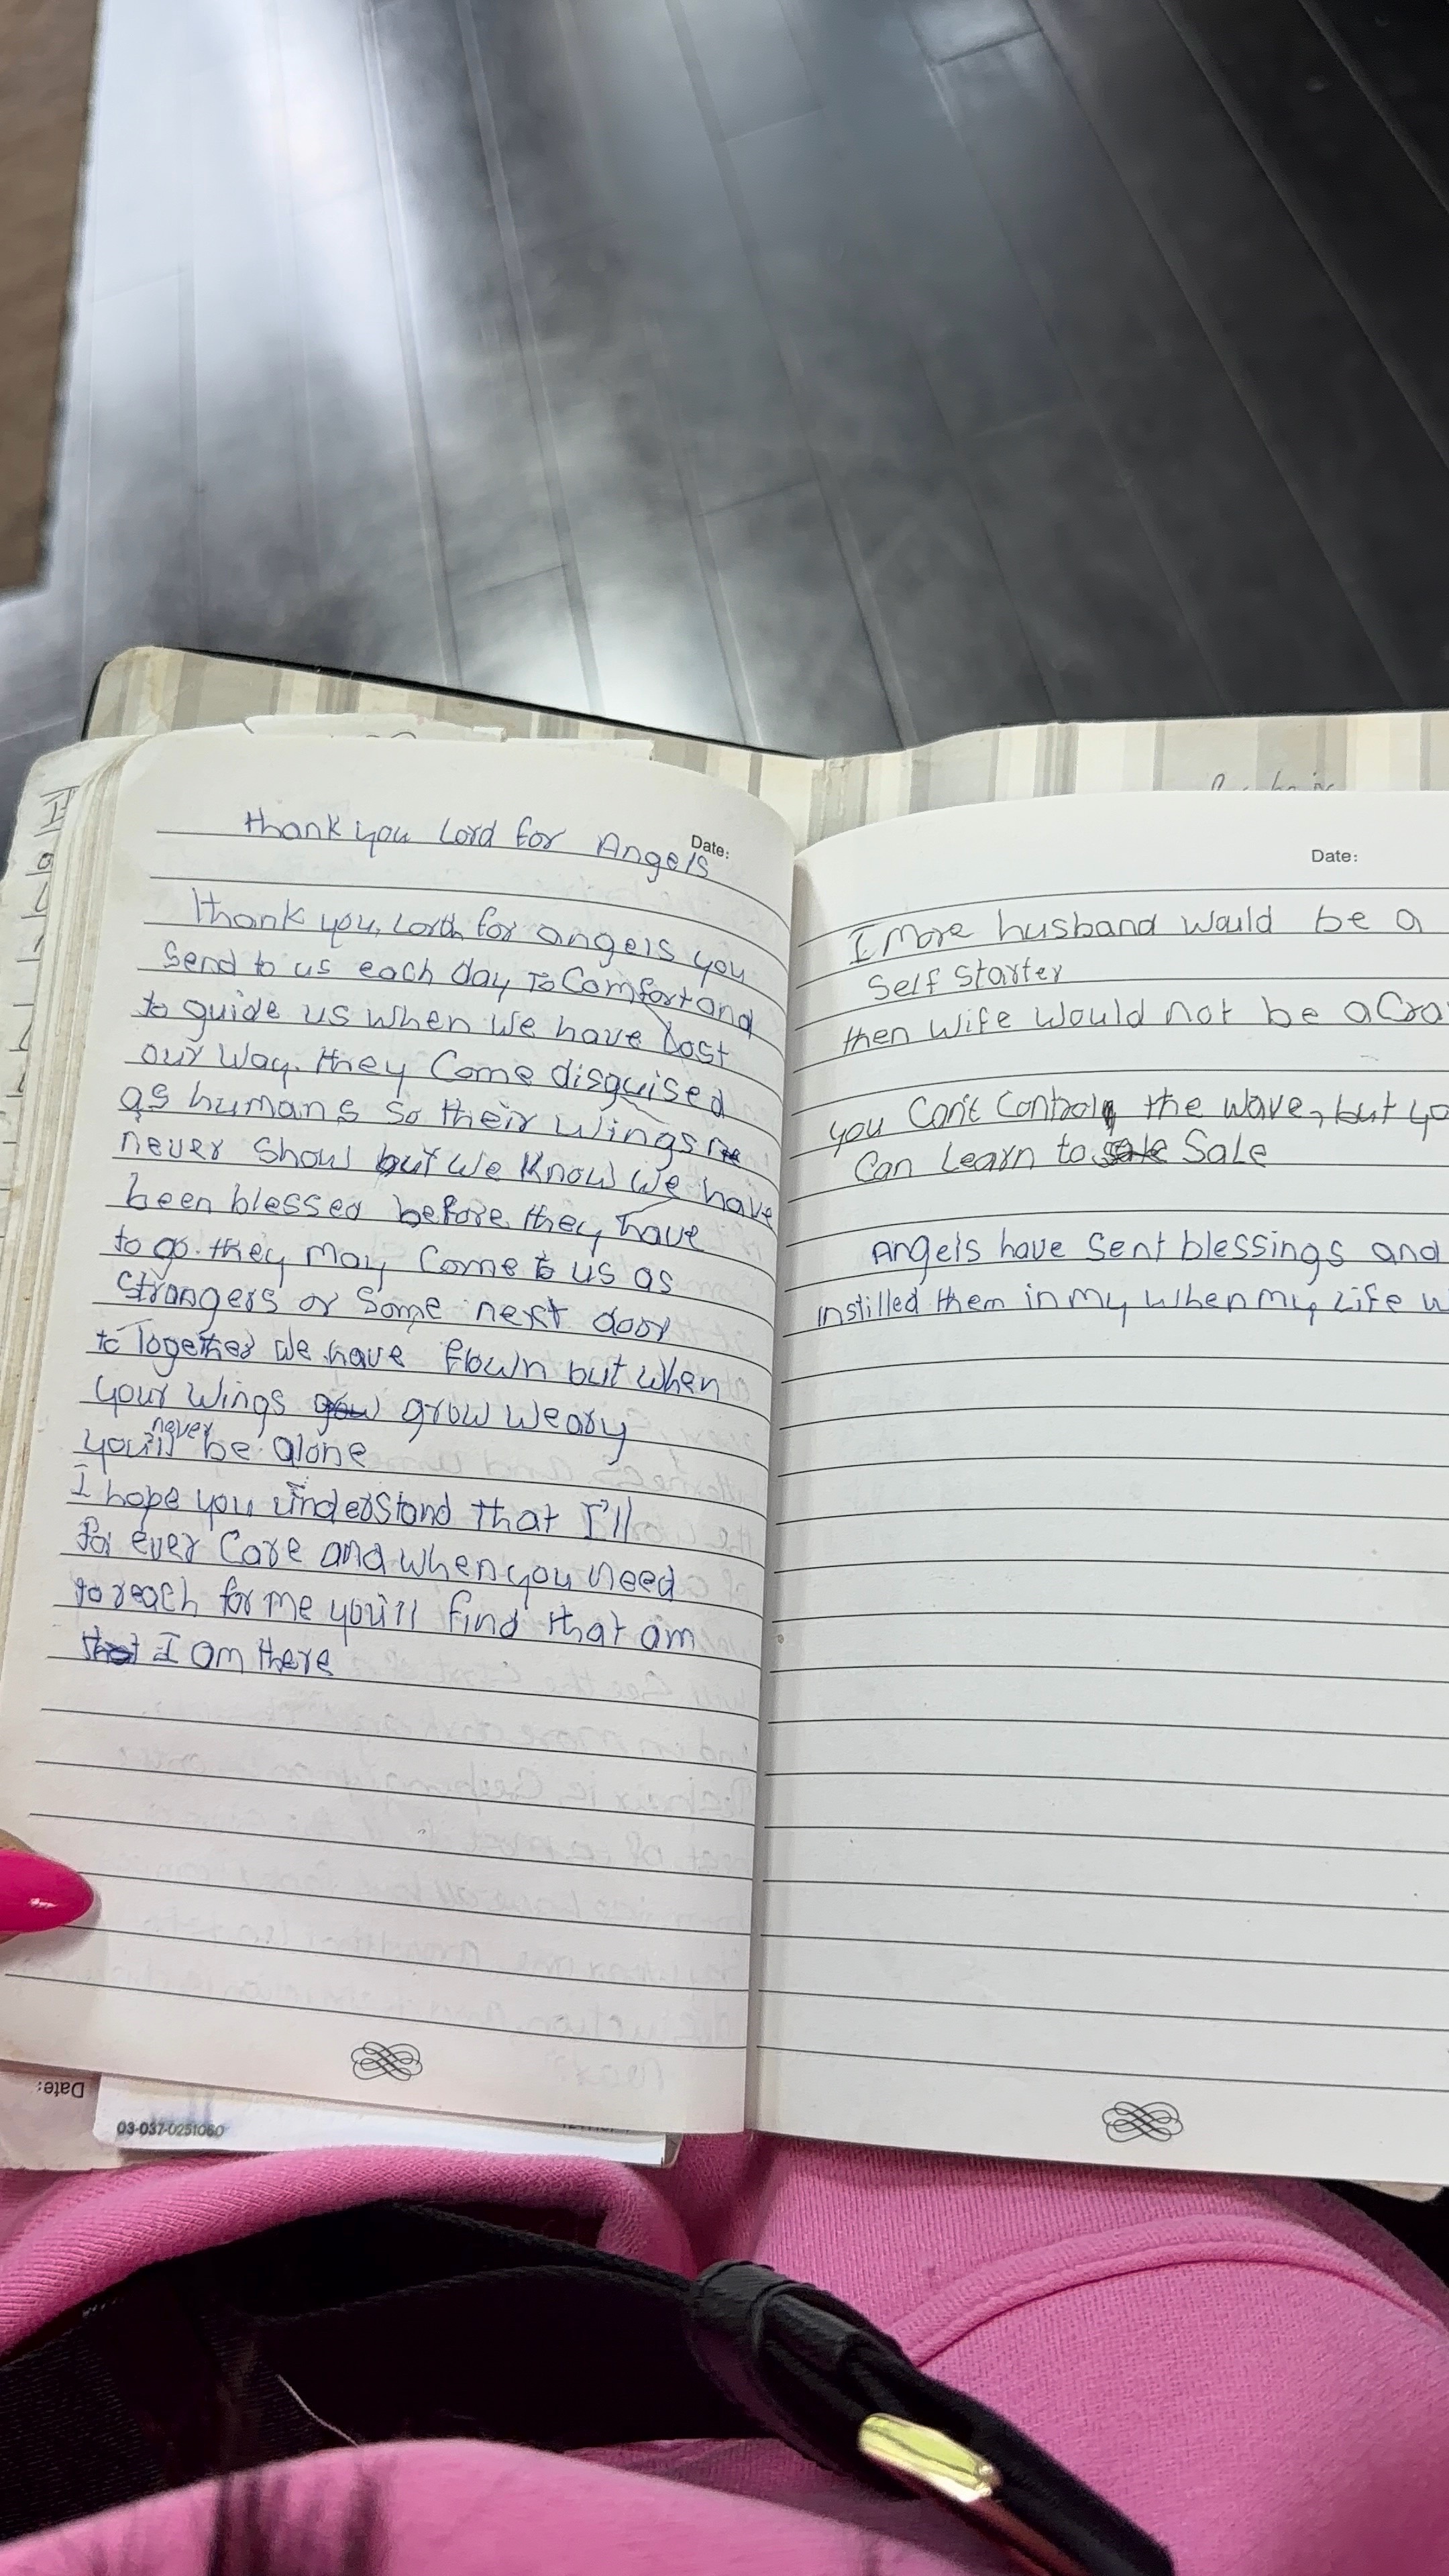 thank you Lord for Angels
Date:
thank you, Lord for angels you
Send to us each day To Comfort and
to guide us when we have Lost
our way. they Come disguised
as humans so their wings
never show but we know we have
been blessed before they have
to go. they may Come to us as
Strangers or Some next door
to Together we have flown but when
your wings grow weary
you'll never be alone
I hope you understand that I'll
for ever Care and when you need
to reach for me you'll find that am
that I am there
Date:
I More husband would be a
Self starter
then wife would not be a Cra
you Can't Control the wave, but yo
Can Learn to Sale
Angels have Sent blessings and
instilled them in my when my Life w
Date:
03-037-0251060